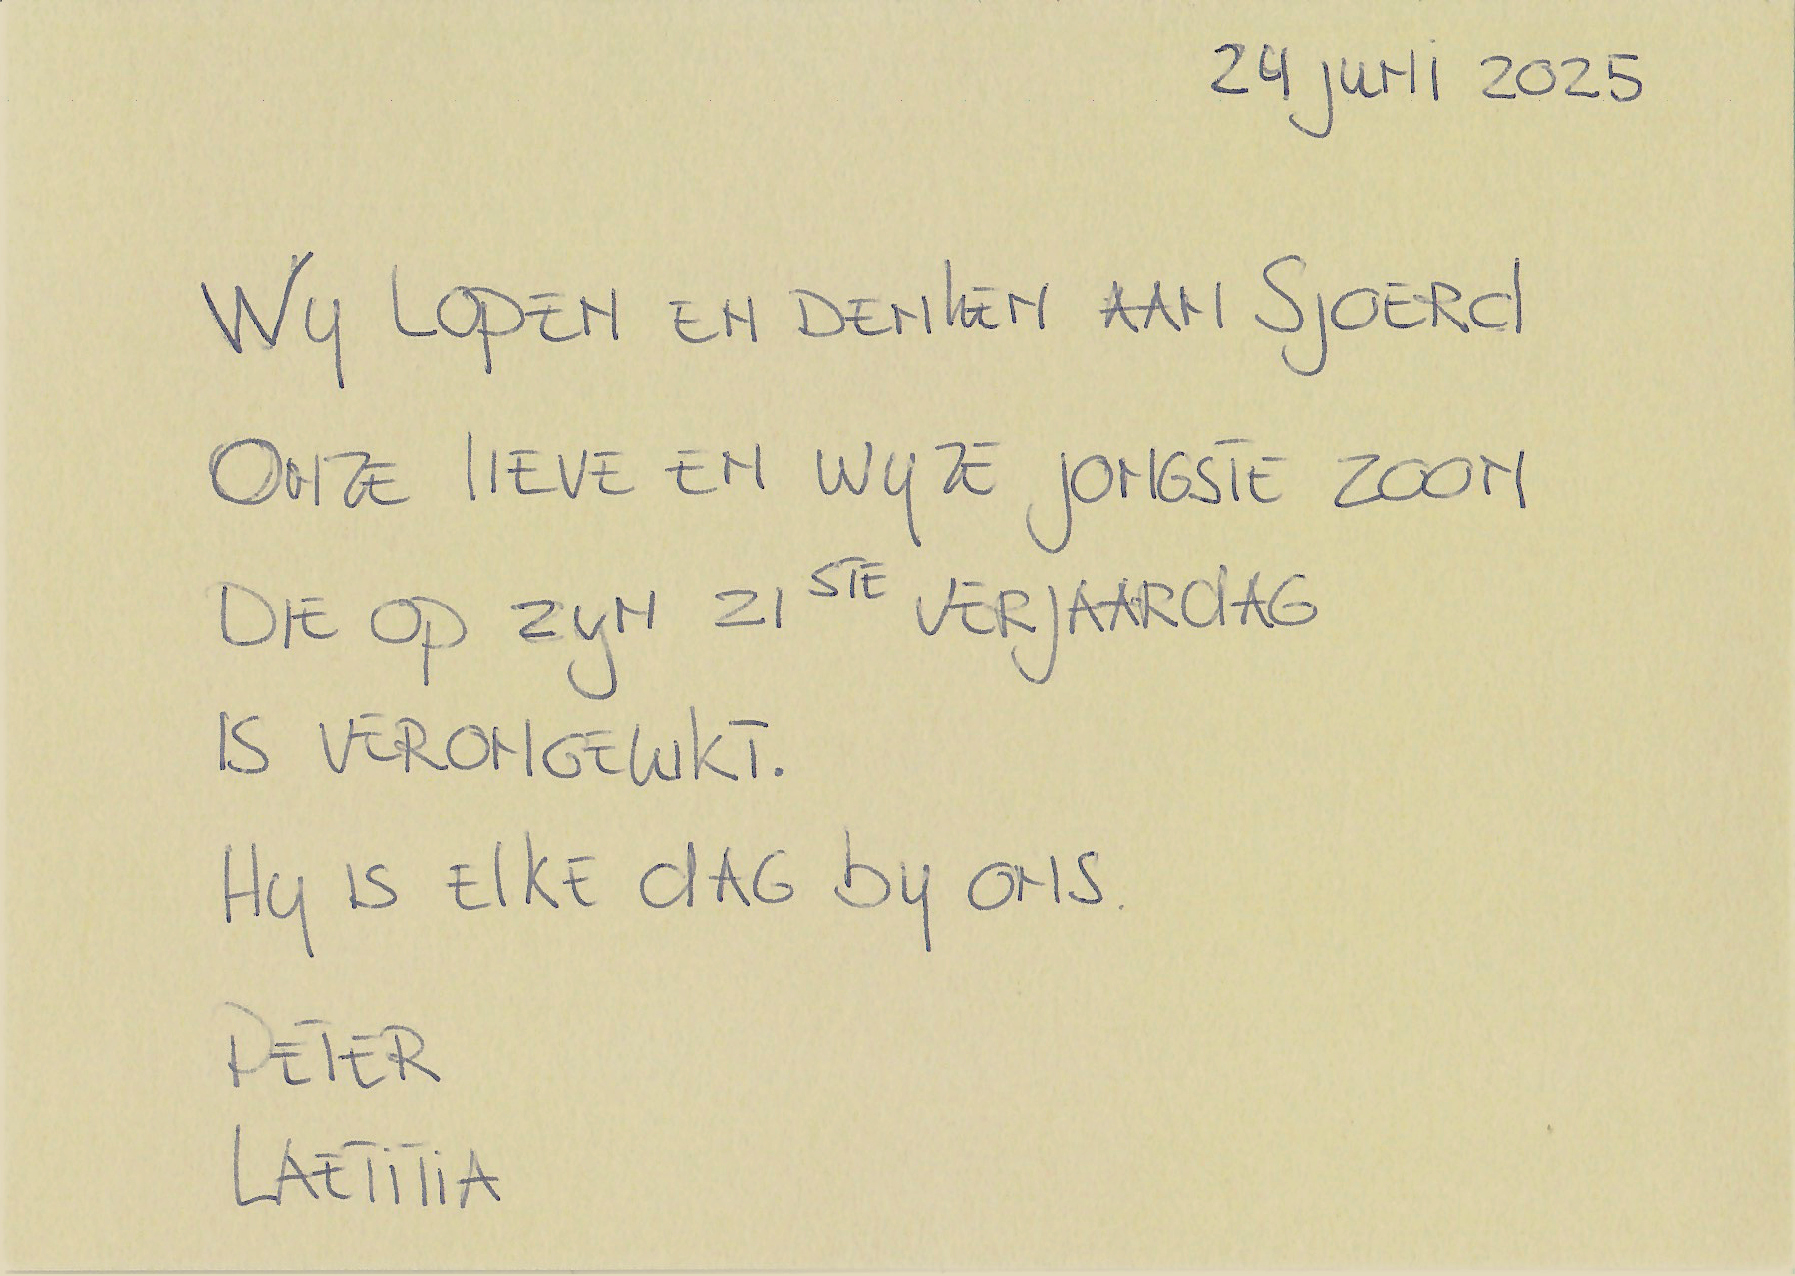 24 juni 2025
Wy lopen en denken aan Sjoerd
Onze lieve en wyze jongste zoon
Die op zyn 21ste verjaardag
is verongelukt.
Hy is elke dag by ons.
Peter
Laetitia